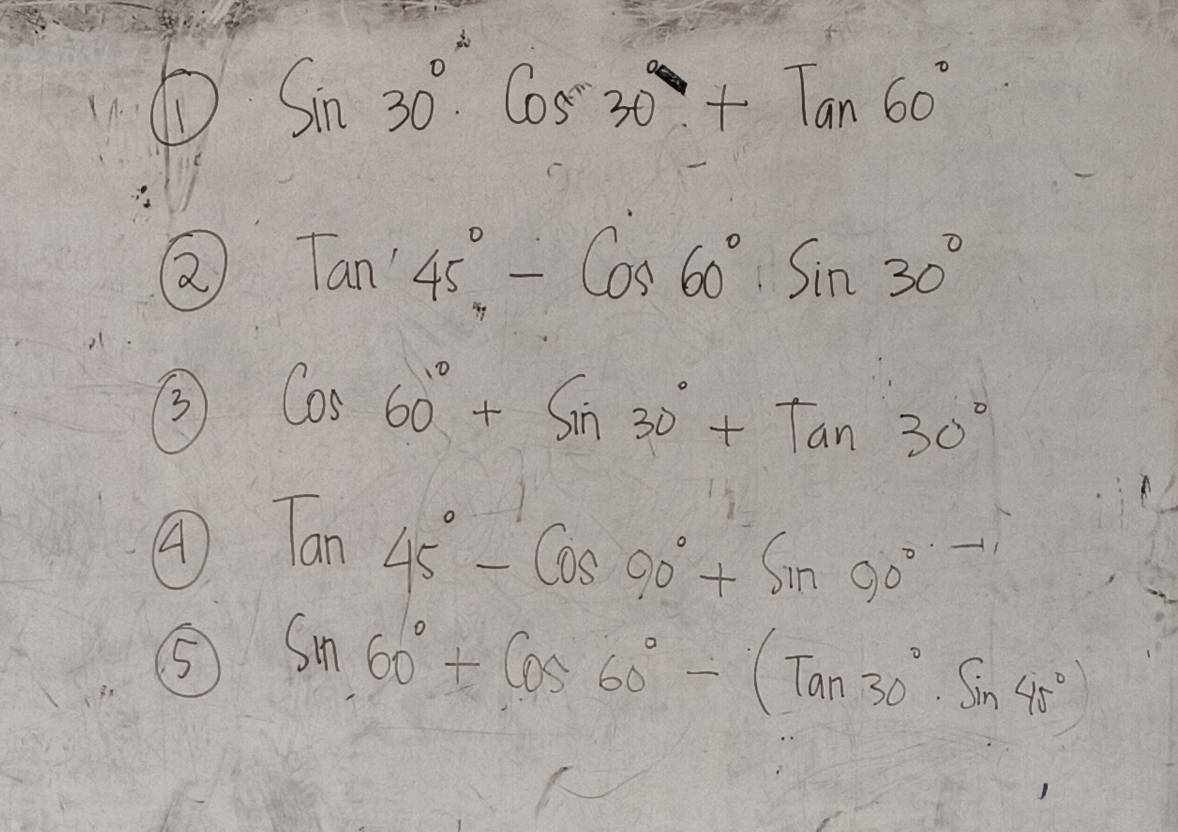 ① Sin 30° . Cos 30° + Tan 60°
② Tan 45° - Cos 60° . Sin 30°
③ Cos 60° + Sin 30° + Tan 30°
④ Tan 45° - Cos 90° + Sin 90°
⑤ Sin 60° + Cos 60° - (Tan 30° . Sin 45°)